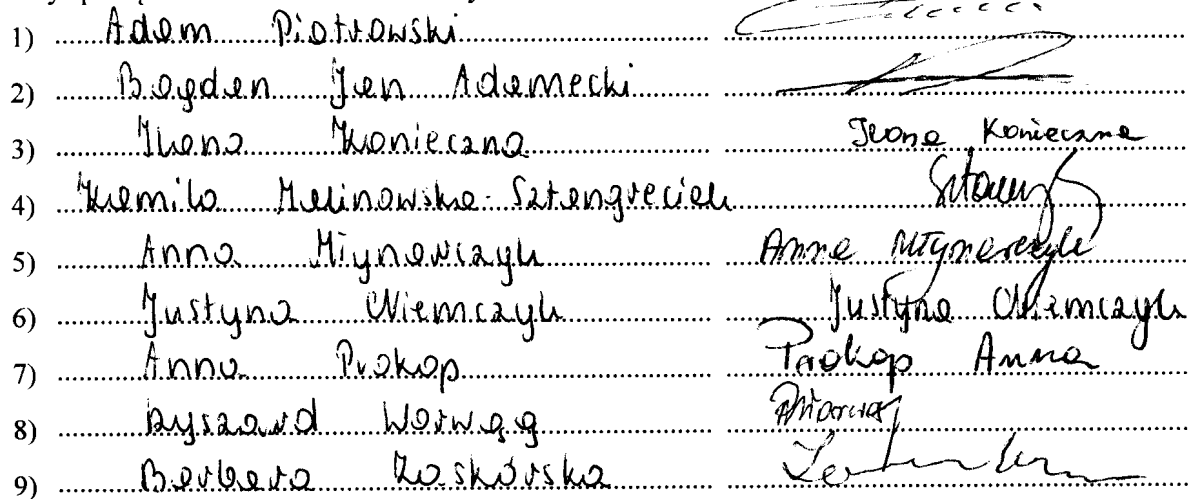 1) Adam Piotrowski
2) Bogdan Jan Adamecki
3) Iwona Konieczna Iwona Konieczna
4) Kamila Malinowska-Sztengreciak
5) Anna Młynarczyk Anna Młynarczyk
6) Justyna Niemczyk Justyna Niemczyk
7) Anna Prokop Prokop Anna
8) Ryszard Worwąg
9) Barbara Zaskórska